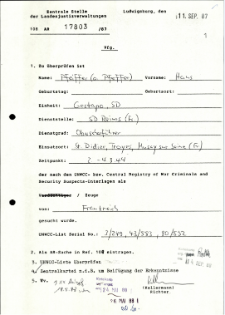 Zentrale Stelle
der Landesjustizverwaltungen
Ludwigsburg, den 11. SEP. 87
AR 17803 /87
Vfg.
1. Zu Überprüfen ist
Name: Pfeiffer (o. Pfeffer) Vorname: Hans
Geburtsdatum: Geburtsort:
Einheit: Gestapo, SD
Dienststelle: SD Reims (Fr.)
Dienstgrad: Oberscharführer
Einsatzort: St. Didier, Troyes, Mussy sur Seine (Fr.)
Zeitpunkt:
der nach den UNWCC- bzw. Central Registry of War Criminals and
Security Suspects-Unterlagen als
/ Zeuge
von Frankreich
gesucht wurde.
UNWCC-List Serial No.: 7/249, 43/593, 80/552
2. Als AR-Sache in Ref. eintragen.
3. UNWCC-Liste überprüfen
4. Zentralkartei z.w.B. um Beifügung der Erkenntnisse
5. Wv.
Richter